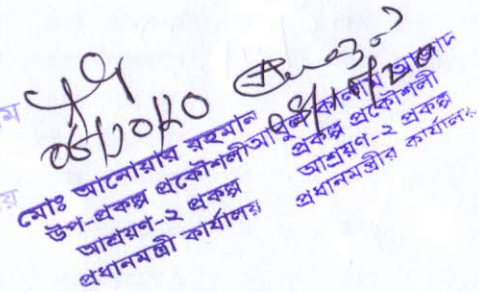 ম
য়
০৮/১০/২০
মোঃ আনোয়ার রহমান
উপ-প্রকল্প প্রকৌশলী
আশ্রয়ণ-২ প্রকল্প
প্রধানমন্ত্রী কার্যালয়
আবুল কালাম আজাদ
প্রকল্প প্রকৌশলী
আশ্রয়ণ-২ প্রকল্প
প্রধানমন্ত্রীর কার্যালয়